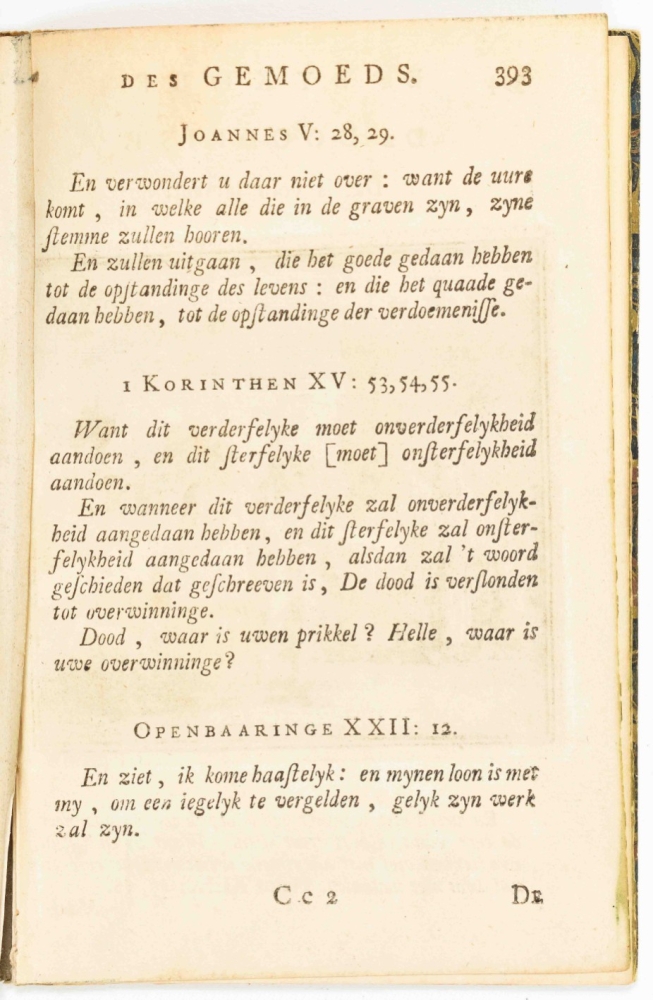 DES GEMOEDS. 393
JOANNES V: 28, 29.
En verwondert u daar niet over : want de uure
komt , in welke alle die in de graven zyn, zyne
ſtemme zullen hooren.
En zullen uitgaan , die het goede gedaan hebben
tot de opſtandinge des levens : en die het quaade ge-
daan hebben, tot de opſtandinge der verdoemeniſſe.
1 KORINTHEN XV: 53,54,55.
Want dit verderfelyke moet onverderfelykheid
aandoen , en dit ſterfelyke [moet] onſterfelykheid
aandoen.
En wanneer dit verderfelyke zal onverderfelyk-
heid aangedaan hebben, en dit ſterfelyke zal onſter-
felykheid aangedaan hebben , alsdan zal 't woord
geſchieden dat geſchreeven is, De dood is verſlonden
tot overwinninge.
Dood , waar is uwen prikkel? Helle , waar is
uwe overwinninge?
OPENBAARINGE XXII: 12.
En ziet, ik kome haaſtelyk: en mynen loon is met
my , om een iegelyk te vergelden , gelyk zyn werk
zal zyn.
Cc 2 DE